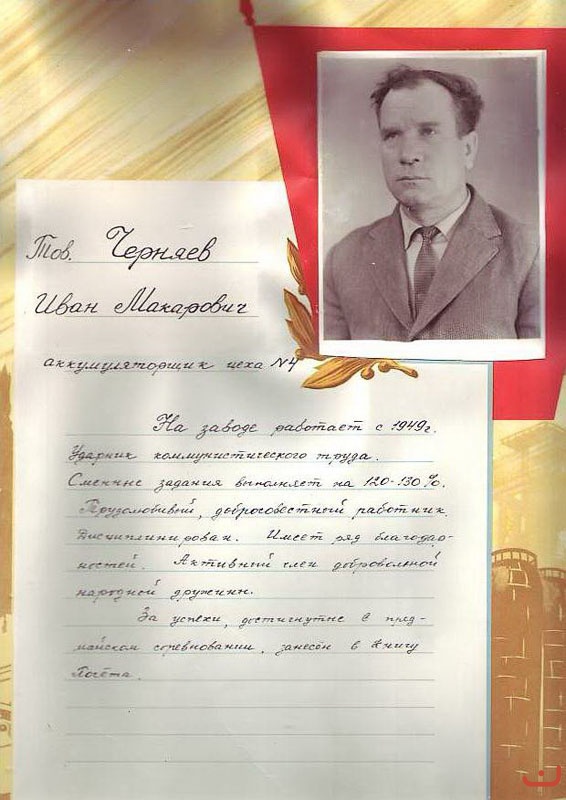 Тов. Черняев
Иван Макарович
аккумуляторщик цеха №4
На заводе работает с 1949г.
Ударник коммунистического труда.
Сменные задания выполняет на 120-130%.
Трудолюбивый, добросовестный работник.
Дисциплинирован. Имеет ряд благодар-
ностей. Активный член добровольной
народной дружины.
За успехи, достигнутые в пред-
майском соревновании, занесён в Книгу
Почёта.